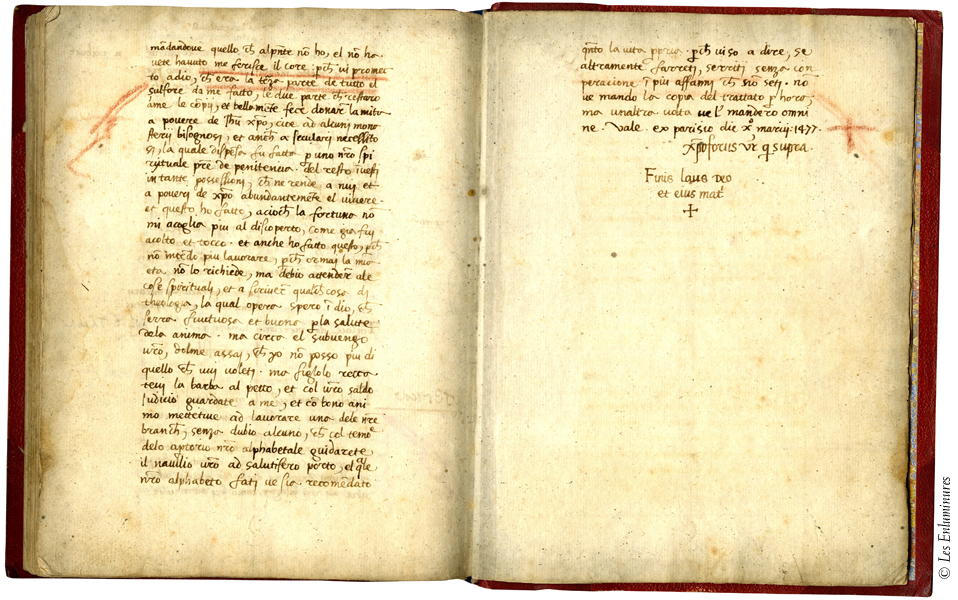 mãdandove quello ch̃ alp̃nte nõ ho, el nõ ha
vete havuto me ferisce il core: p̱ch̃ vi promet
to adio, ch̃ era la terza parte de tutto el
sulfore da me fatto, le due parte ch̃ restoro
ame le copij, et bellamẽte fece donare la mità
a povere de Jhũ xp̃o, cioe ad alcuni mono
sterij bisognosi, et anch̃ a seculari necessito
si, la quale dispẽsa fu fatta p̱ uno nr̃o spi
rituale pr̃e de penitencia. del resto ĩvesti
in tante possessioni, ch̃ ne rende a nuj et
a poveri de xp̃o abundantemẽte el vivere.
et questo ho fatto, acioch̃ la fortuna nõ
mi acoglia piu al discoperto, come gia fuj
acolto et tocco. et anche ho fatto questo, p̱ch̃
nõ intẽdo piu lavorare, p̱ch̃ ormaj la mia
eta nõ lo richiede, ma debio attendere ale
cose spirituali, et a scrivere qualch̃ cosa di
theologia, la qual opera spero ĩ dio, ch̃
serra fructuosa et buona p̱ la salute
dela anima. ma circa el subuengo
vr̃o, dolme assaj, ch̃ yo nõ posso piu di
quello ch̃ vuj voleti. ma figlolo recca
tevi la barba al petto, et col vr̃o saldo
Judicio guardate a me, et cõ bono ani
mo mettetive ad lavorare una dele nr̃e
branch̃, senza dubio alcuno, ch̃ col temõe
delo aptorio nr̃o alphabetale guidarete
il navilio vr̃o ad salutifero porto, el qle
nr̃o alphabeto fati ve sia recomẽdato
qñto la vita pp̱ria. p̱ch̃ viso a dire, se
altramente farreti, serriti senza con
peracione ĩ piu affanni ch̃ nõ seti. nõ
ve mando la copia del trattato p̱ hora,
ma unaltra volta ve l' manderò omni
ne. Vale. ex parisio die xº marcij. 1477.
xp̃oforus vr̃ q̃ supra.
Finis laus deo
et eius matͥ
+
© Les Enluminures